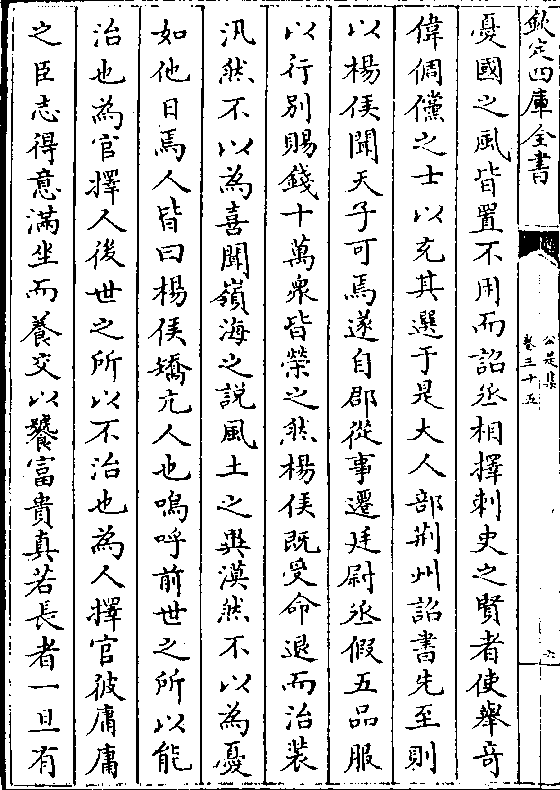 欽定四庫全書
公是集
卷三十五
憂國之風皆置不用而詔丞相擇刺史之賢者使舉竒
偉倜儻之士以充其選于是大人部荆州詔書先至則
以楊侯聞天子可焉遂自郡從事遷廷尉丞假五品服
以行别賜錢十萬衆皆榮之然楊侯既受命退而治装
汎然不以為喜聞嶺海之説風土之異漠然不以為憂
如他日焉人皆曰楊侯矯亢人也嗚呼前世之所以能
治也為官擇人後世之所以不治也為人擇官彼庸庸
之臣志得意滿坐而養交以饕富貴真若長者一旦有